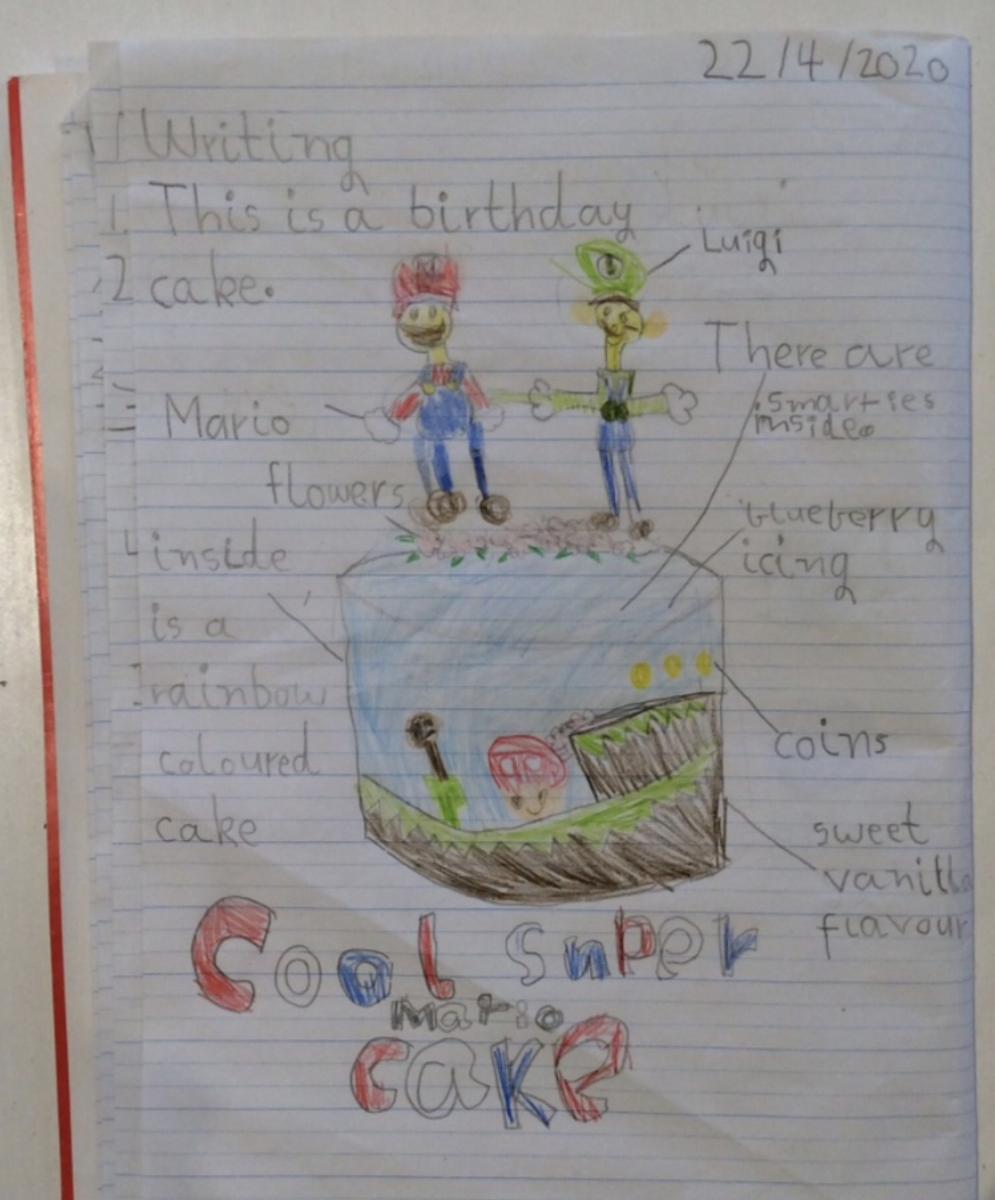 22/4/2020
Writing
1. This is a birthday
2 cake.
Luigi
There are
smarties
inside.
Mario
flowers
blueberry
icing
4 inside
is a
rainbow
coloured
cake
coins
sweet
vanilla
flavour
Cool super
Mario
cake